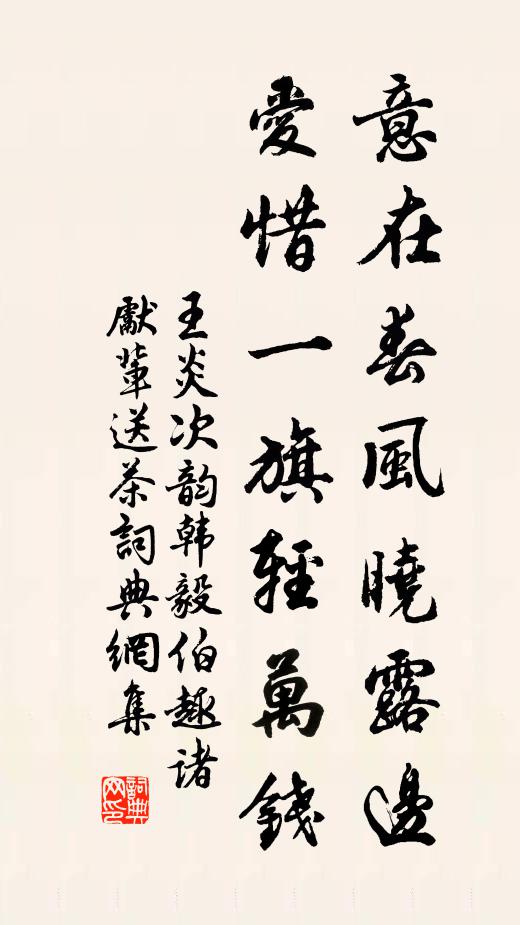 意在春風曉露邊
愛惜一旗輕萬錢
王炎次韵韩毅伯趣诸
獻輩送茶詞典網集
詞典
网印